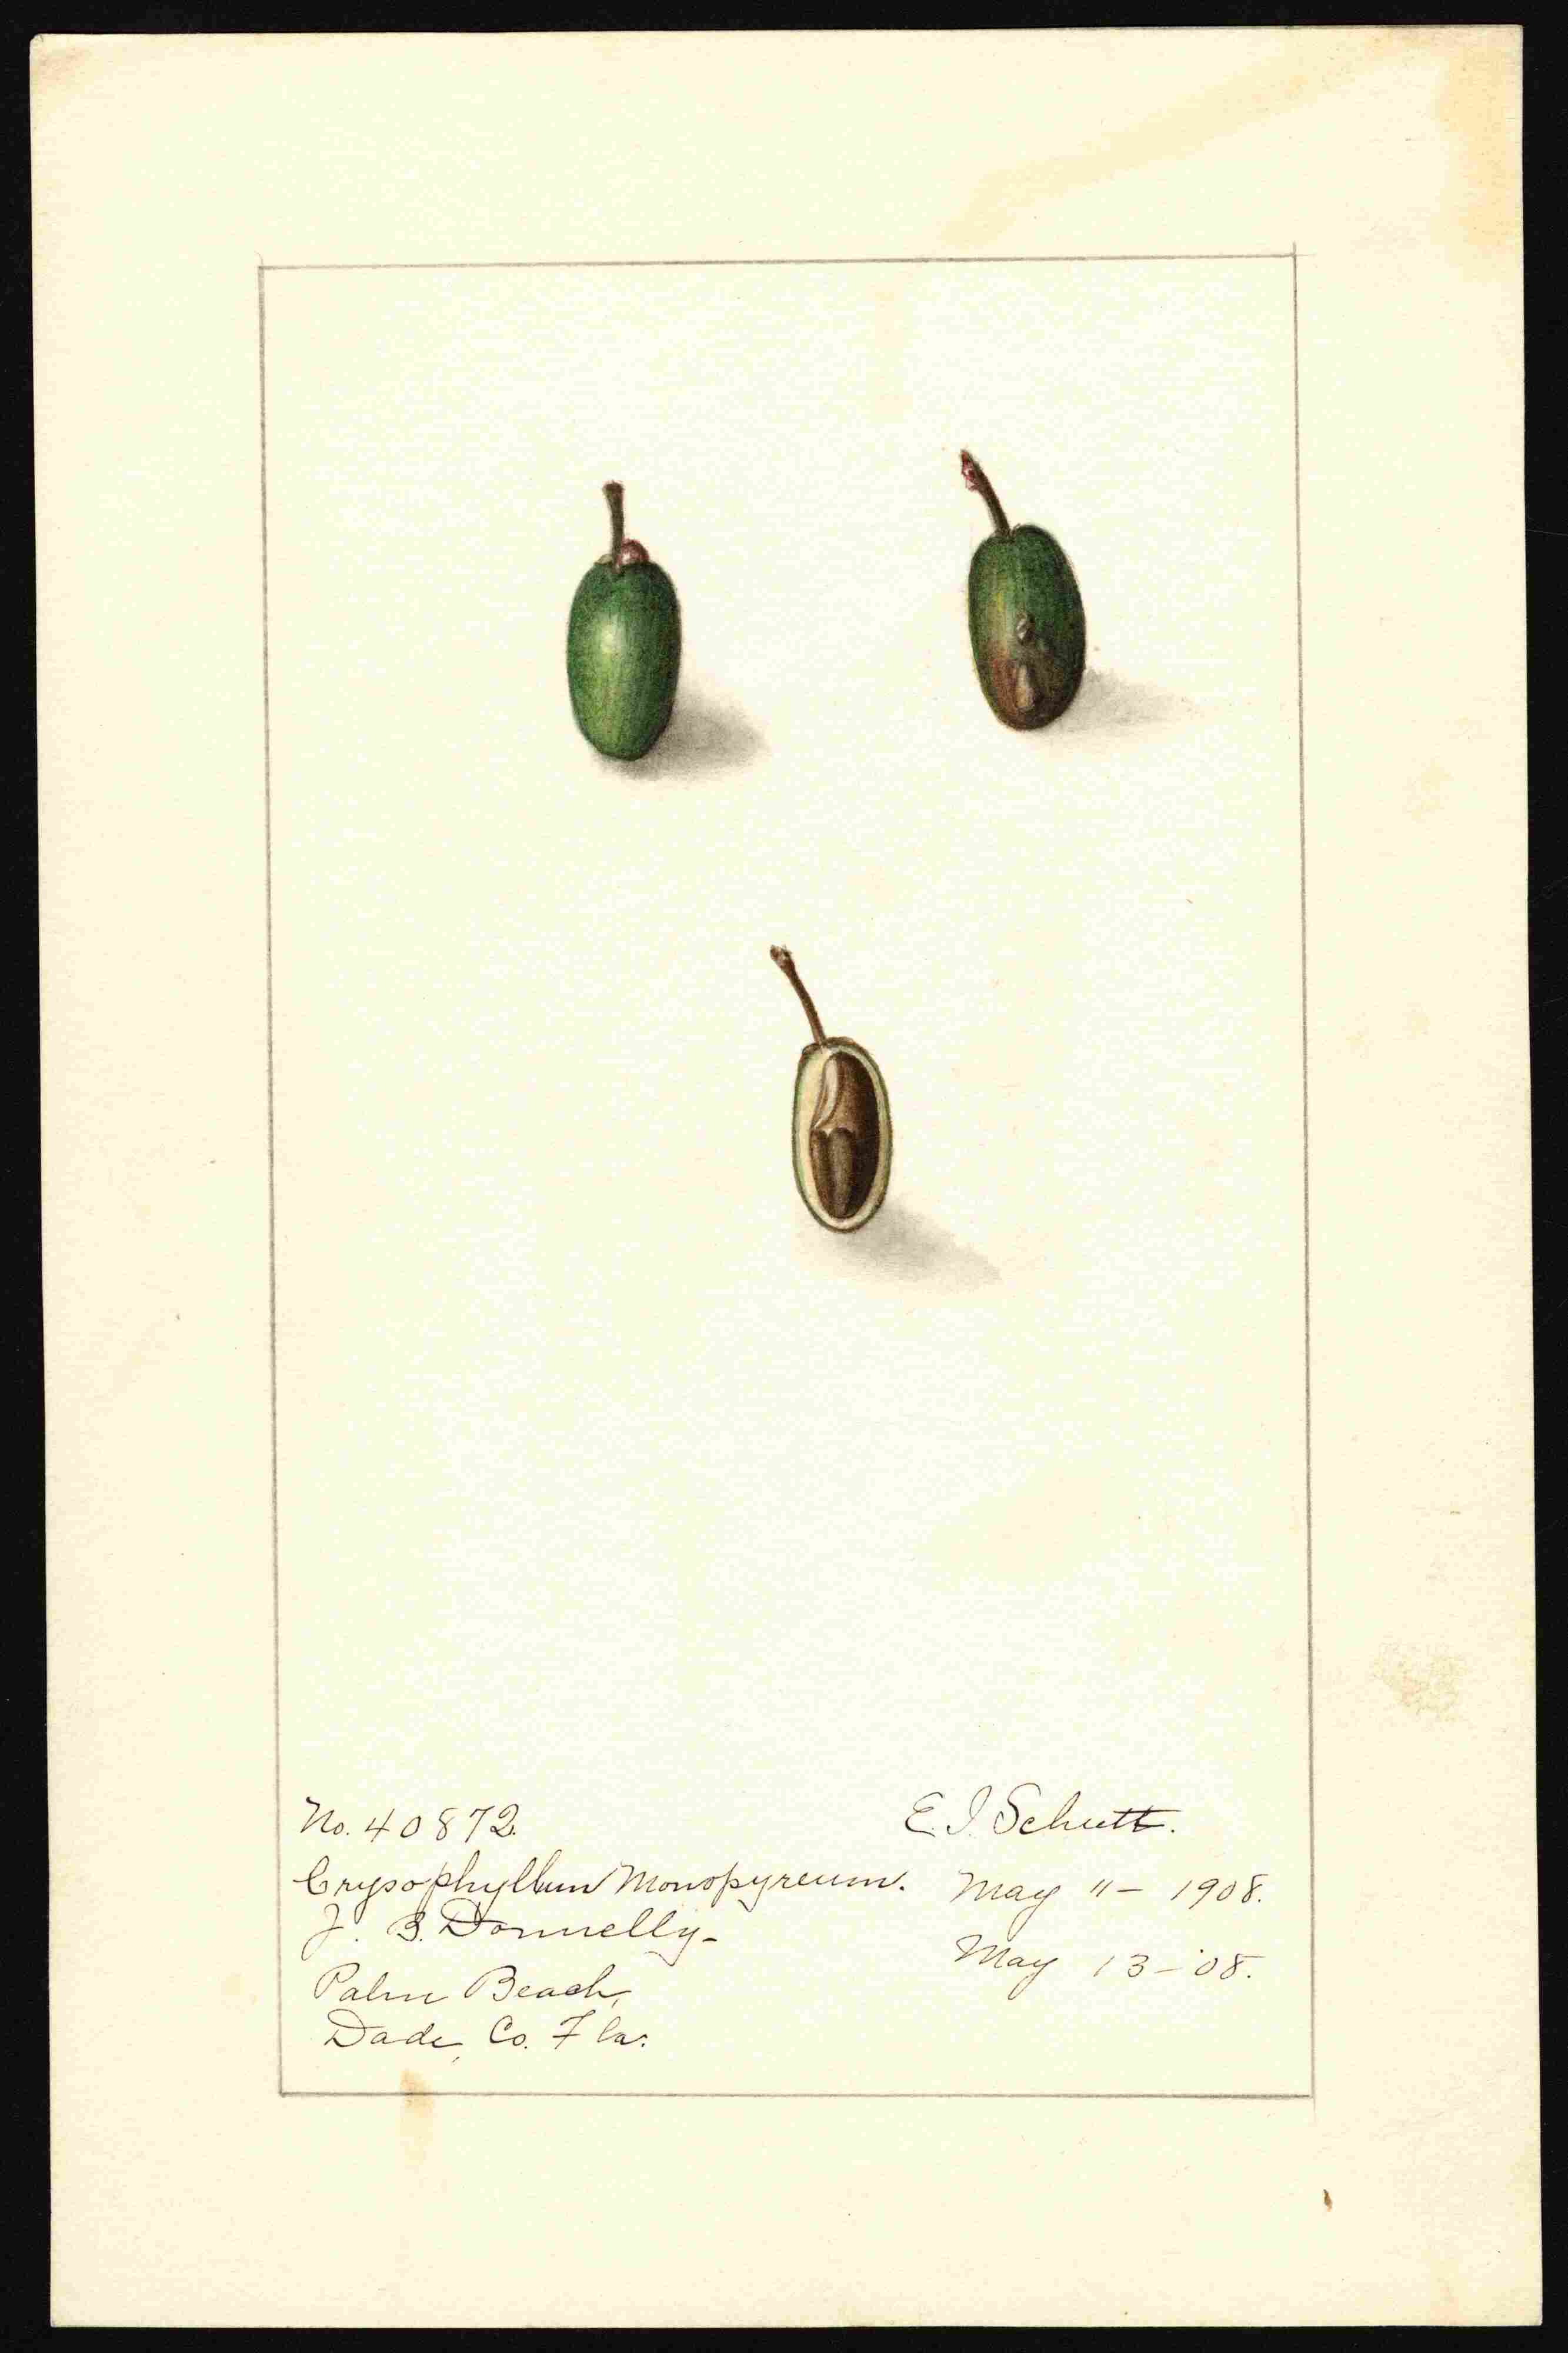 No. 40872.
Crysophyllum Monopyreum.
J. B. Donnelly-
Palm Beach,
Dade, Co. Fla.
E. I. Schutt.
May 11- 1908.
May 13-'08.